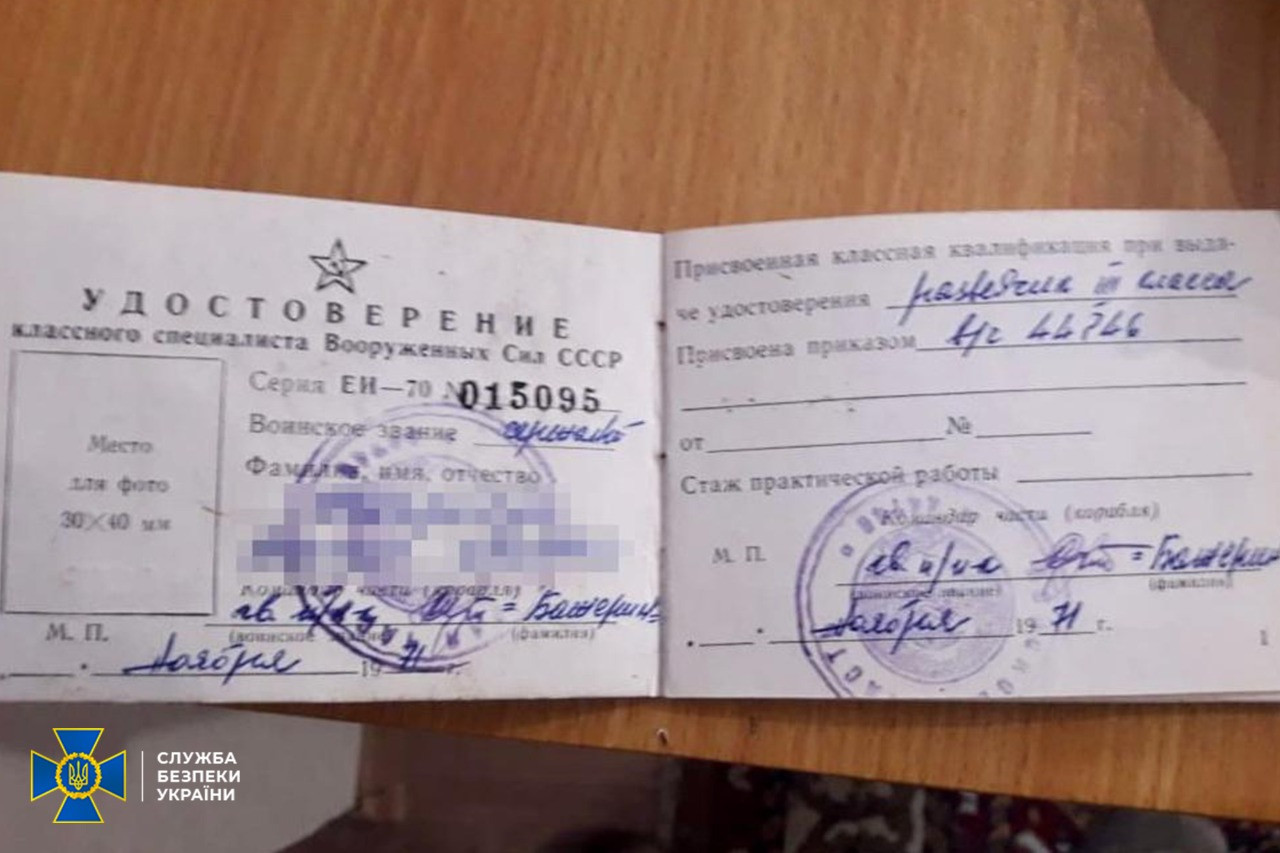 УДОСТОВЕРЕНИЕ
классного специалиста Вооруженных Сил СССР
Серия ЕИ—70 № 015095
Воинское звание
Фамилия, имя, отчество
Место
для фото
30×40 мм
Командир части (корабля)
гв. п/п-к = Бажерин
М. П. (воинское звание) (фамилия)
Ноября 1971 г.
Присвоенная классная квалификация при выда-
че удостоверения разведчик III класса
Присвоена приказом в/ч 44746
от № 
Стаж практической работы
Командир части (корабля)
М. П. гв п/п-к = Бажерин
(воинское звание) (фамилия)
Ноября 1971 г.
1
СЛУЖБА
БЕЗПЕКИ
УКРАЇНИ